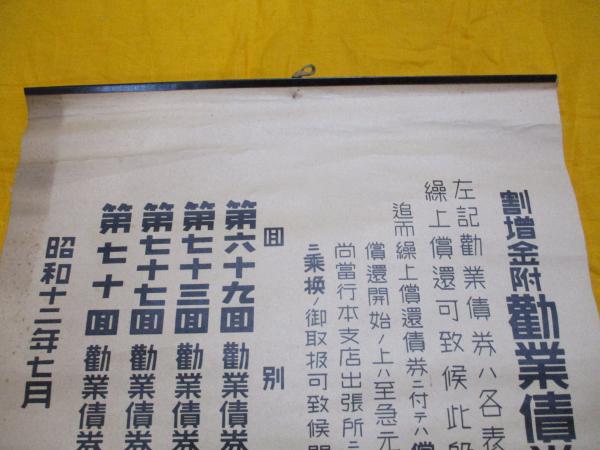 割増金附勸業債券
左記勸業債券ハ各表
繰上償還可致候此段
追而繰上償還債券ニ付テハ償
償還開始ノ上ハ至急元
尚當行本支店出張所ニ
ニ乗換ノ御取扱可致候間
回別
第六十九回勸業債券
第七十三回勸業債券
第七十七回勸業債券
第七十回勸業債券
昭和十二年七月